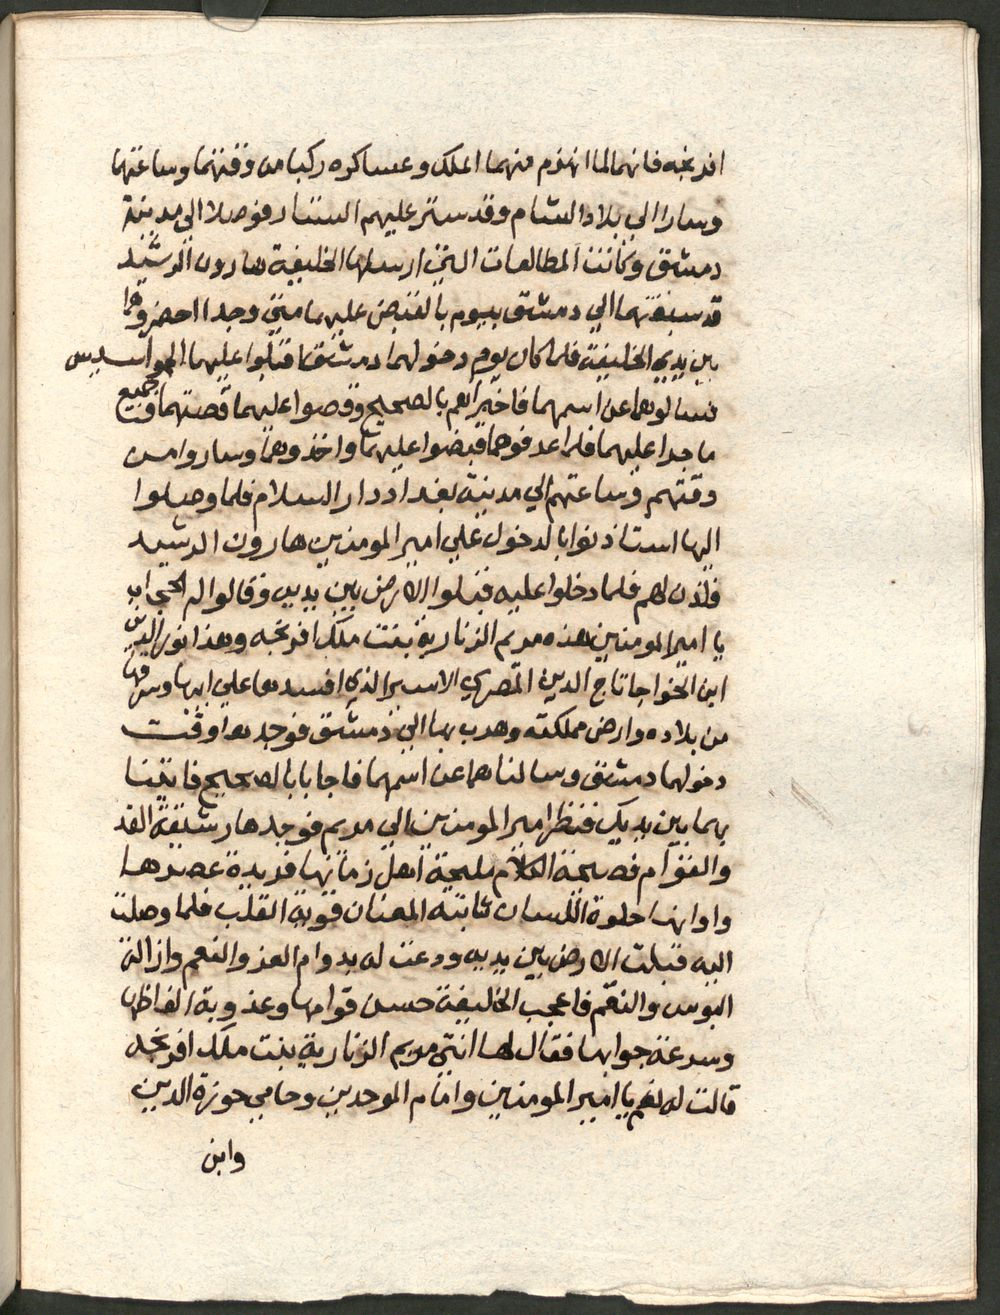 افرنجه فانهما لما انهزم منهما الملك وعساكره ركبا من وقتهما وساعتهما
وسارا الي بلاد الشام وقد ستر عليهم الستار فوصلا الي مدينة
دمشق وكانت المطالعات التي ارسلها الخليفة هارون الرشيد
قد سبقتهما الي دمشق بيوم بالقبض عليهما متي وجدا احضروهما
بين يدي الخليفة فلما كان يوم دخولهما دمشق اقبلوا عليهما الجواسيس
فسالوهما عن اسمهما فاخبراهم بالصحيح وقصوا عليهما قصتهما جميع
ما جرا عليهما فلما عرفوهما قبضوا عليهما واخذوهما وساروا من
وقتهم وساعتهم الي مدينة بغداد دار السلام فلما وصلوا
اليها استاذنوا بالدخول علي امير المومنين هارون الرشيد
فاذن لهم فلما دخلوا عليه قبلوا الارض بين يديه وقالوا له الحجاب
يا امير المومنين هذه مريم الزنارية بنت ملك افرنجه وهذا نور الدين
ابن الخواجا تاج الدين المصري الاسير الذي افسدها علي ابيها وسرقها
من بلاده وارض مملكته وهرب بها الي دمشق فوجدها وقت
دخولهما دمشق وسالناهما عن اسمهما فاجابا بالصحيح فاتينا
بهما بين يديك فنظر امير المومنين الي مريم فوجدها رشيقة القد
والقوام فصيحة الكلام مليحة اهل زمانها فريدة عصرها
واوانها حلوة اللسان ثابته الجنان قوية القلب فلما وصلت
اليه قبلت الارض بين يديه ودعت له بدوام العز والنعم وازالة
البوس والنقم فاعجب الخليفة حسن قوامها وعذوبة الفاظها
وسرعة جوابها فقال لها انتي مريم الزنارية بنت ملك افرنجه
قالت له نعم يا امير المومنين وامام الموحدين وحامي حوزة الدين
وابن